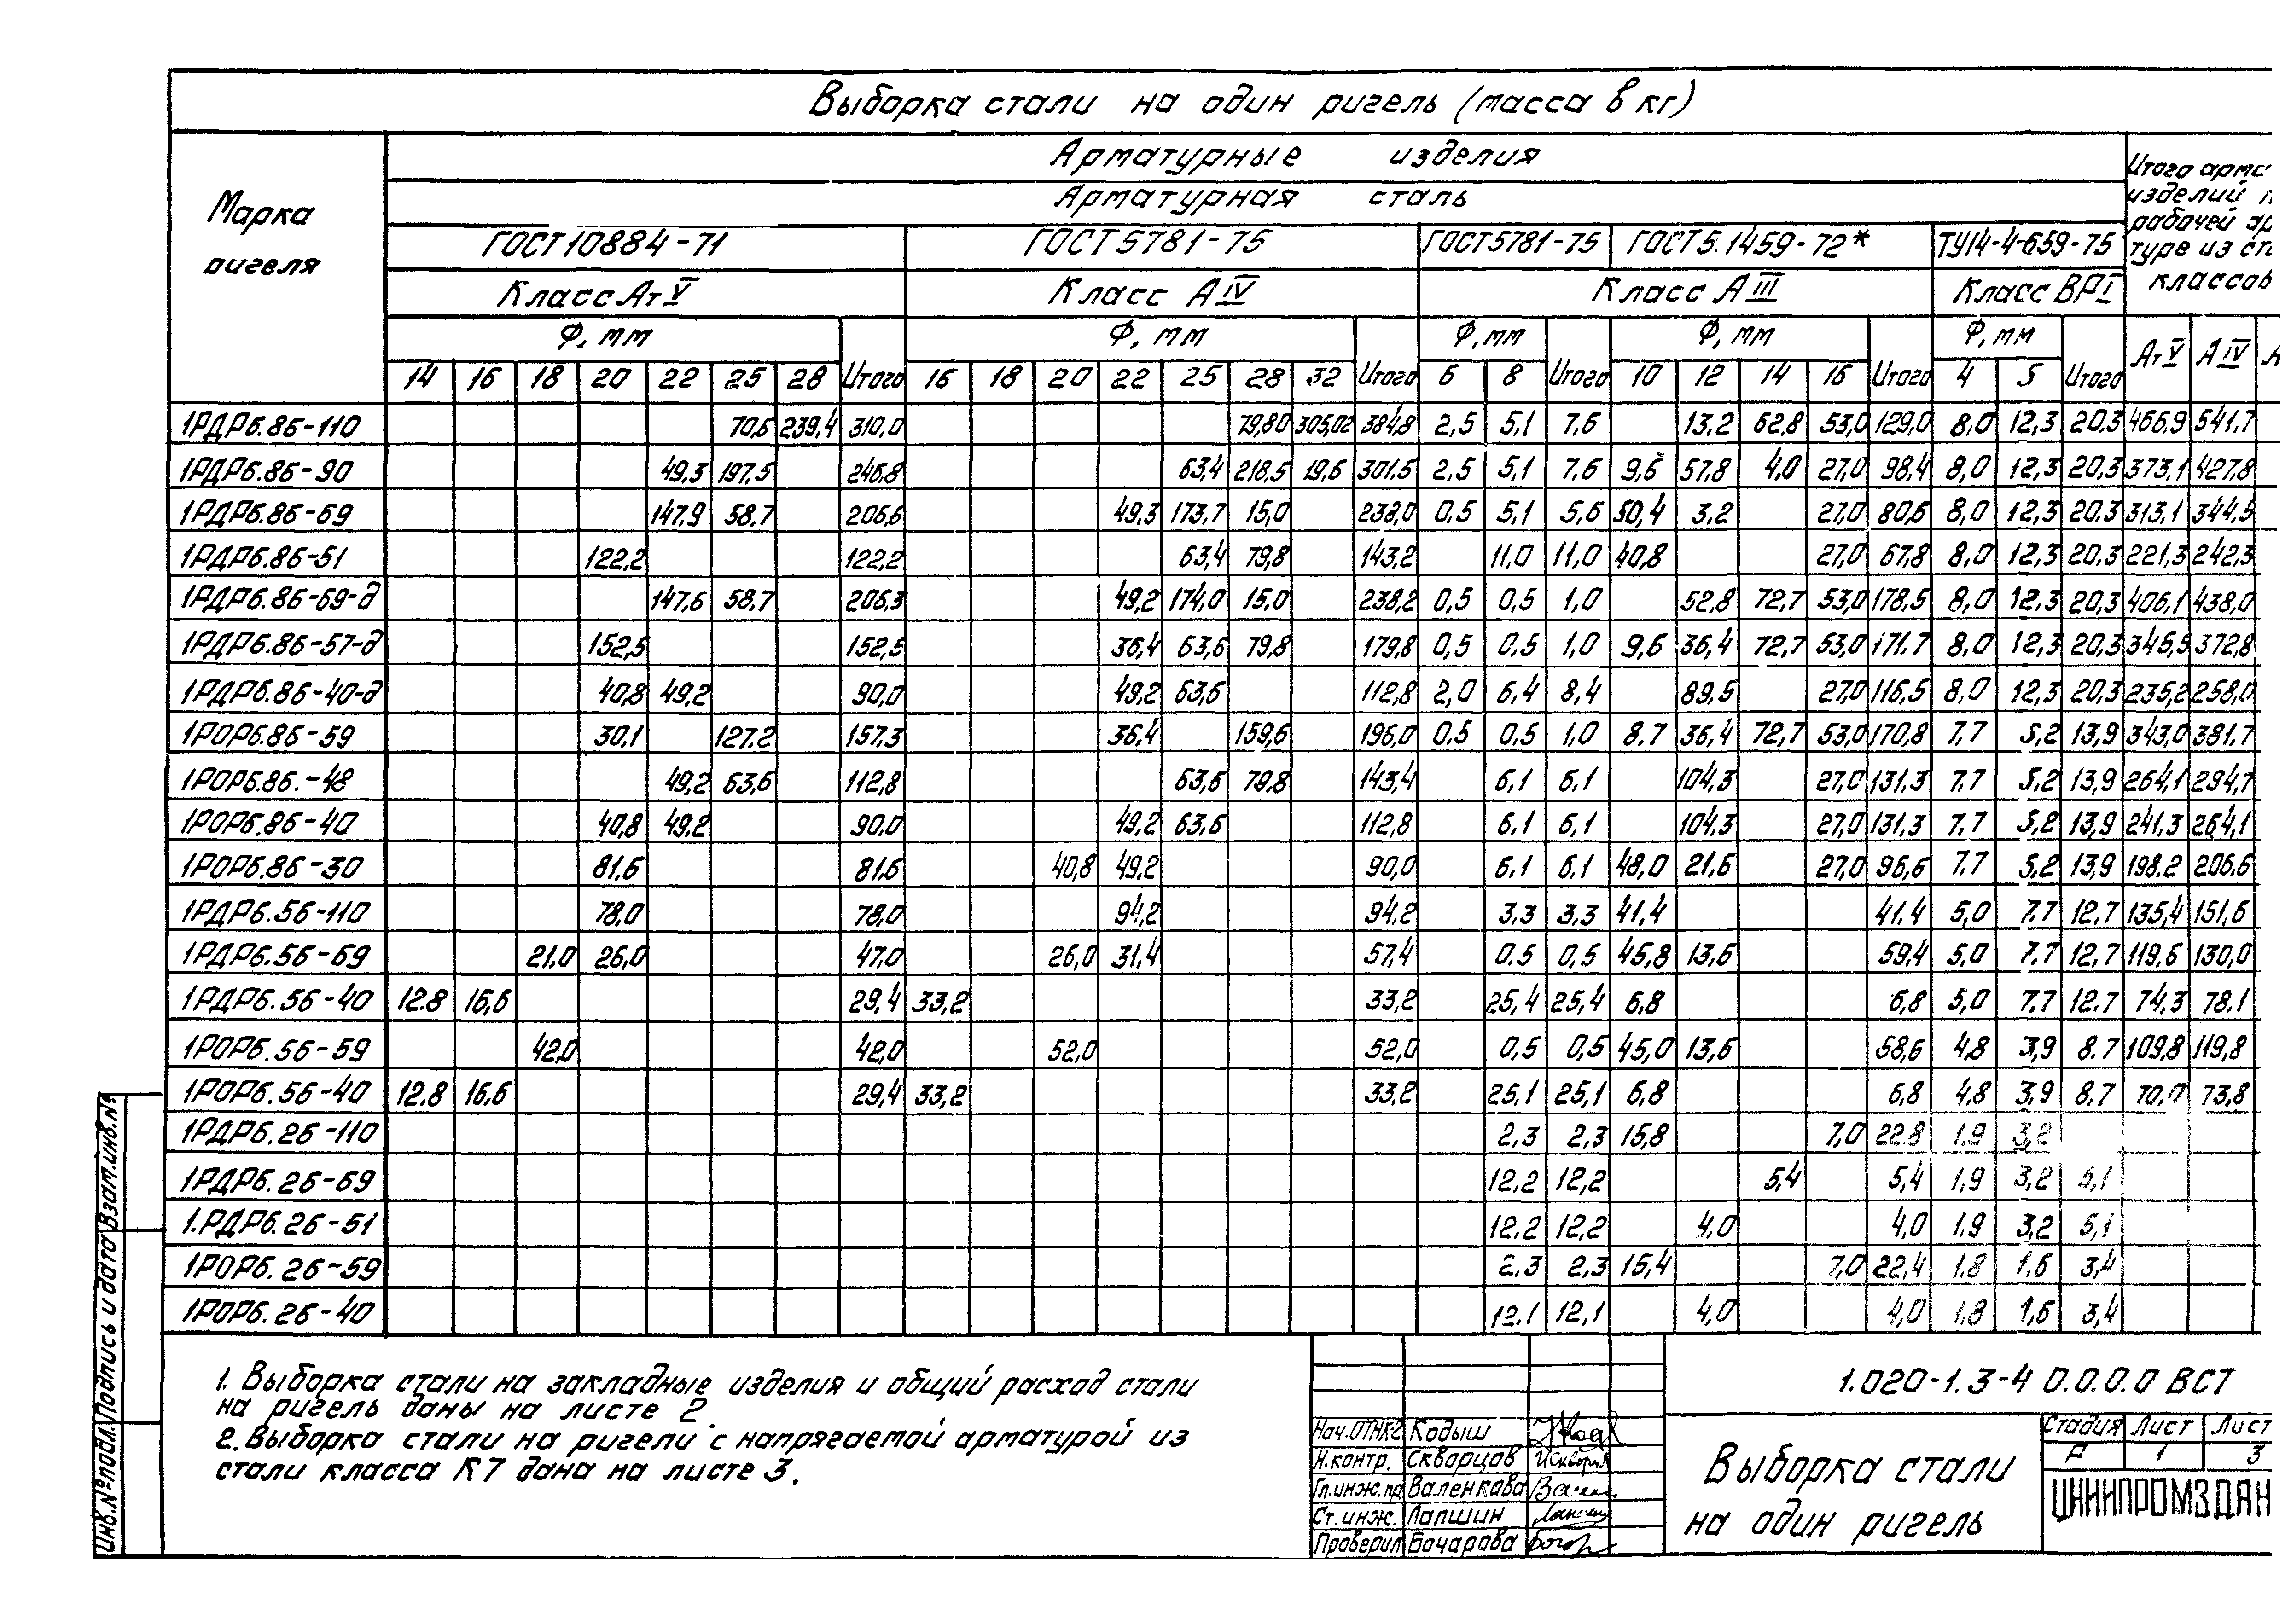 Выборка стали на один ригель (масса в кг)
Марка ригеля
Арматурные изделия
Арматурная сталь
ГОСТ 10884-71 ГОСТ 5781-75 ГОСТ 5781-75 ГОСТ 5.1459-72* ТУ14-4-659-75
Класс Ат V Класс А IV Класс А III Класс ВР I
Итого
изделий
рабочей
туре из
классов
Ф, мм Ф, мм Ф, мм Ф, мм Ф, мм
14 16 18 20 22 25 28 Итого 16 18 20 22 25 28 32 Итого 6 8 Итого 10 12 14 16 Итого 4 5 Итого Ат V А IV
1РДР6.86-110 70,6 239,4 310,0 79,80 305,02 384,8 2,5 5,1 7,6 13,2 62,8 53,0 129,0 8,0 12,3 20,3 466,9 541,7
1РДР6.86-90 49,3 197,5 246,8 63,4 218,5 19,6 301.5 2,5 5,1 7,6 9,6 57,8 4,0 27,0 98,4 8,0 12,3 20,3 373,1 427,8
1РДР6.86-69 147,9 58,7 206,6 49,3 173,7 15,0 238,0 0,5 5,1 5,6 50,4 3,2 27,0 80,6 8,0 12,3 20,3 313,1 344,5
1РДР6.86-51 122,2 122,2 63,4 79,8 143,2 11,0 11,0 40,8 27,0 67,8 8,0 12,3 20,3 221,3 242,3
1РДР6.86-69-д 147,6 58,7 206,3 49,2 174,0 15,0 238,2 0,5 0,5 1,0 52,8 72,7 53,0 178,5 8,0 12,3 20,3 406,1 438,0
1РДР6.86-57-д 152,5 152,5 36,4 63,6 79,8 179,8 0,5 0,5 1,0 9,6 36,4 72,7 53,0 171.7 8,0 12,3 20,3 345,5 372,8
1РДР6.86-40-д 40,8 49,2 90,0 49,2 63,6 112,8 2,0 6,4 8,4 89,5 27,0 116,5 8,0 12,3 20,3 235,2 258,0
1РОР6.86-59 30,1 127.2 157,3 36,4 159,6 196,0 0,5 0,5 1,0 8.7 36,4 72,7 53,0 170,8 7,7 5,2 13,9 343,0 381.7
1РОР6.86.-48 49,2 63,6 112,8 63,6 79,8 143,4 6,1 6,1 104,3 27,0 131,3 7,7 5,2 13,9 264,1 294,7
1РОР6.86-40 40,8 49,2 90,0 49,2 63,6 112,8 6,1 6,1 104,3 27,0 131,3 7,7 5,2 13,9 241,3 264,1
1РОР6.86-30 81,6 81,6 40,8 49,2 90,0 6,1 6,1 48,0 21,6 27,0 96,6 7,7 5,2 13,9 198.2 206,6
1РДР6.56-110 78,0 78,0 94,2 94,2 3,3 3,3 41,4 41.4 5,0 7.7 12,7 135,4 151,6
1РДР6.56-69 21,0 26,0 47,0 26,0 31,4 57,4 0.5 0,5 45,8 13,6 59,4 5,0 7.7 12,7 119,6 130,0
1РДР6.56-40 12.8 16,6 29,4 33,2 33,2 25,4 25,4 6,8 6,8 5,0 7,7 12.7 74,3 78.1
1РОР6.56-59 42,0 42,0 52,0 52,0 0,5 0,5 45,0 13,6 58,6 4,8 3,9 8.7 109,8 119,8
1РОР6.56-40 12.8 16,6 29,4 33,2 33,2 25,1 25,1 6,8 6,8 4,8 3,9 8,7 70,0 73,8
1РДР6.26-110 2,3 2,3 15,8 7,0 22.8 1.9 3,2
1РДР6.26-69 12,2 12,2 5,4 5,4 1,9 3,2 5,1
1.РДР6.26-51 12.2 12,2 4,0 4,0 1.9 3,2 5,1
1РОР6.26-59 2,3 2,3 15,4 7,0 22,4 1.8 1,6 3,4
1РОР6.26-40 12.1 12,1 4,0 4,0 1,8 1,6 3,4
1. Выборка стали на закладные изделия и общий расход стали
на ригель даны на листе 2.
2. Выборка стали на ригели с напрягаемой арматурой из
стали класса К7 дана на листе 3.
Инв.№подл. Подпись и дата Взам.инв.№
Нач.ОТНК-2 Кодыш
Н.контр. Скворцов
Гл.инж.пр Валенкова
Ст.инж. Лапшин
Проверил Бочарова
1.020-1.3-4 0.0.0.0 ВСТ
Выборка стали
на один ригель
Стадия Лист Лист
Р 1 3
ЦНИИПРОМЗДАН